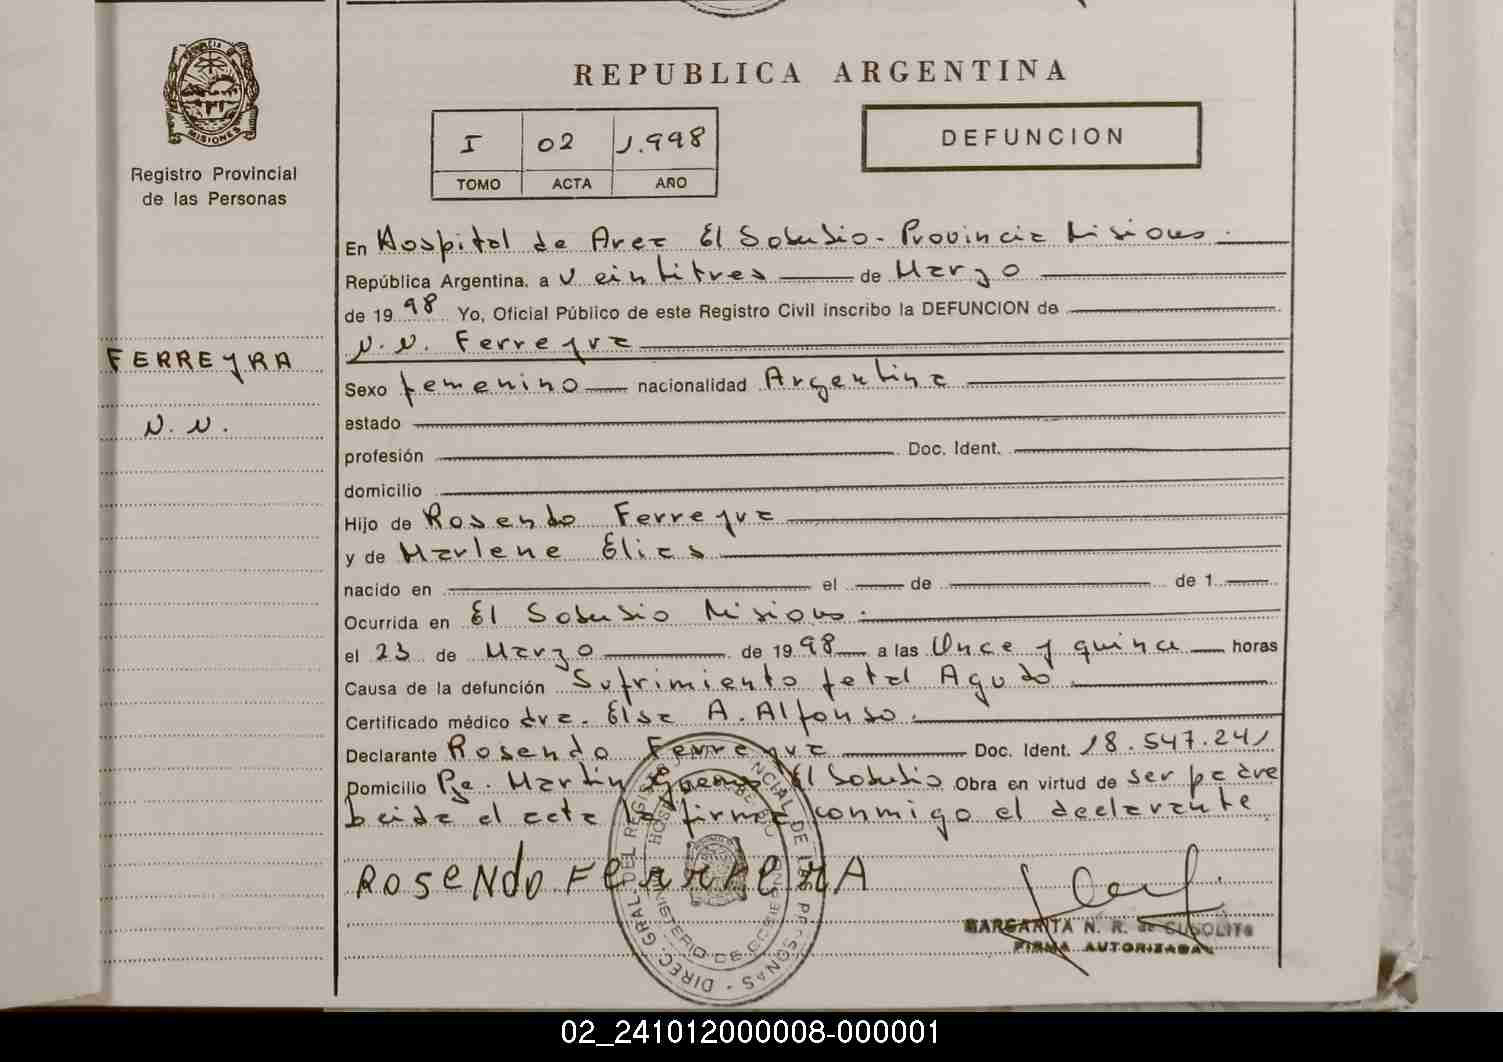 PROVINCIA
MISIONES
Registro Provincial
de las Personas
REPUBLICA ARGENTINA
I 02 1.998
TOMO ACTA AÑO
DEFUNCION
En Hospital de Area El Soberbio - Provincia Misiones.
República Argentina, a Veintitres de Marzo
de 19 98 Yo, Oficial Público de este Registro Civil inscribo la DEFUNCION de
N. N. Ferreyra
FERREYRA
N. N.
Sexo femenino nacionalidad Argentina
estado
profesión Doc. Ident.
domicilio
Hijo de Rosendo Ferreyra
y de Marlene Elias
nacido en el de de 1
Ocurrida en El Soberbio Misiones.
el 23 de Marzo de 19 98 a las Once y quince horas
Causa de la defunción Sufrimiento fetal Agudo.
Certificado médico dra. Elsa A. Alfonso.
Declarante Rosendo Ferreyra Doc. Ident. 18.547.241
Domicilio Martin El Soberbio Obra en virtud de ser padre
Leida el acta la firma conmigo el declarante
ROSENDO
DIREC. GRAL. DEL REGISTRO PROVINCIAL DE LAS PERSONAS
MINISTERIO DE GOBIERNO
MARGARITA N. R. de
FIRMA AUTORIZADA
02_241012000008-000001